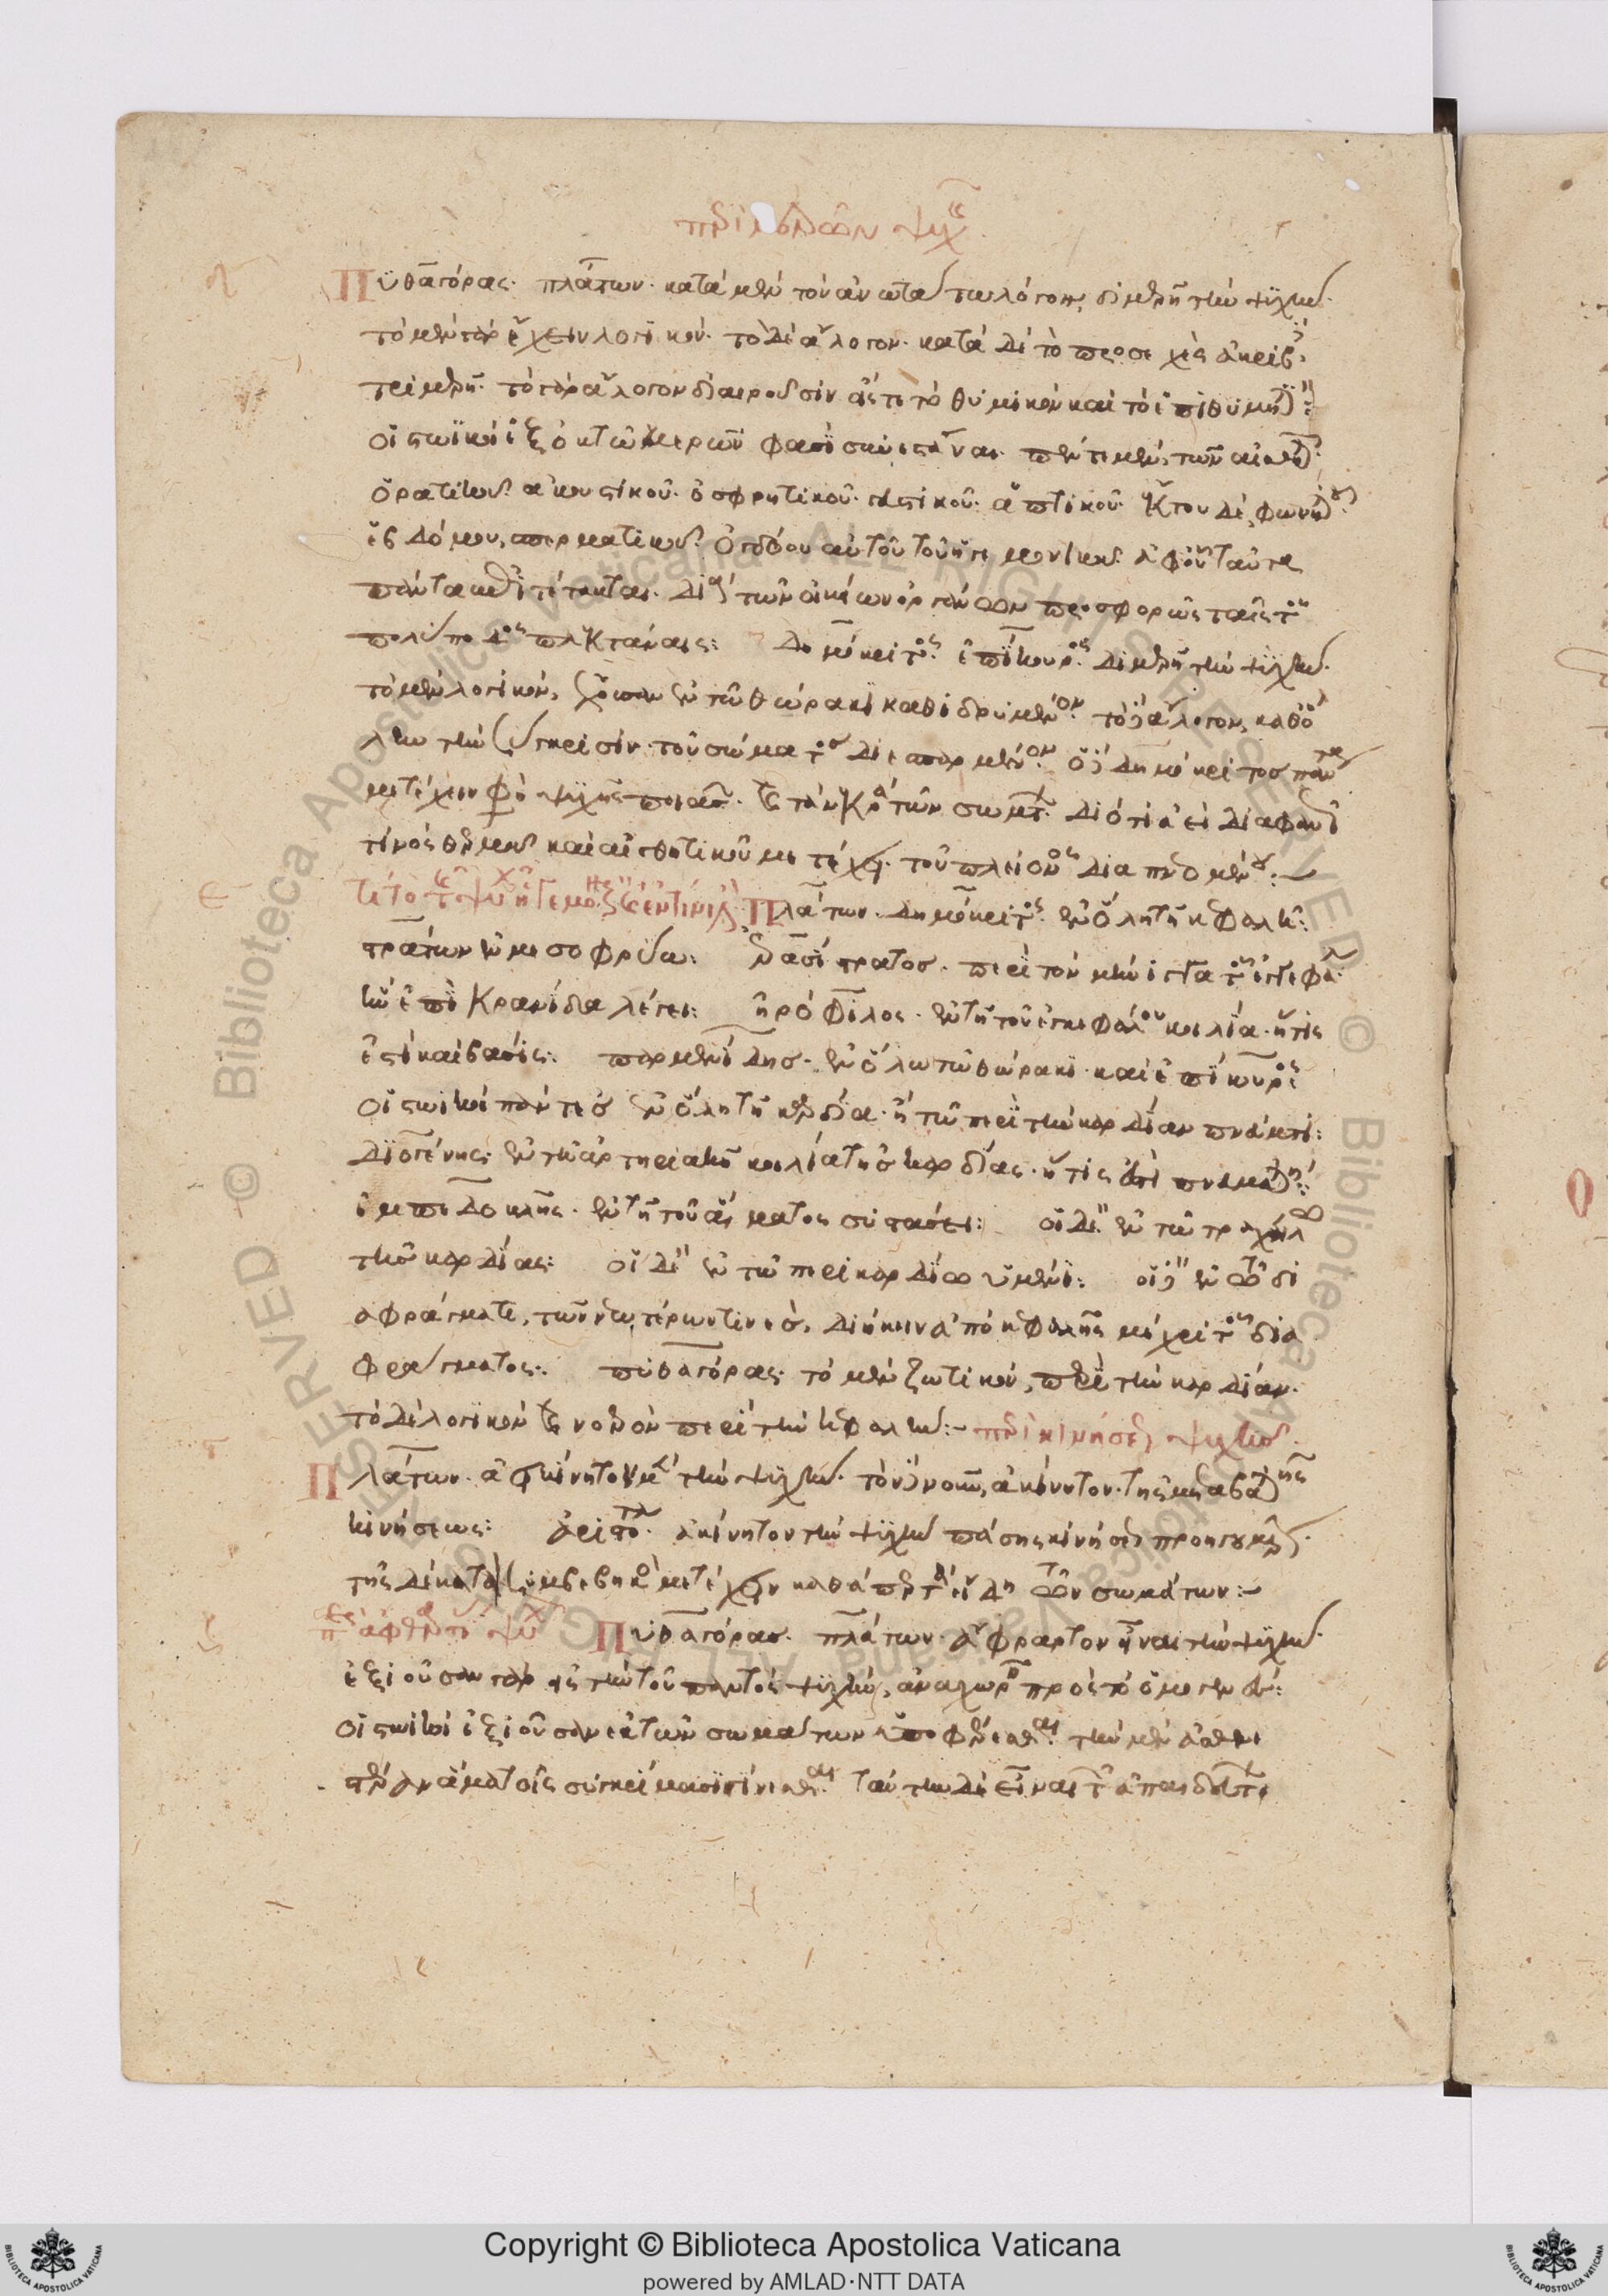 περὶ μερῶν ψυχῆς
δ Πυθαγόρας· πλάτων· κατὰ μὲν τὸν ἀνωτάτω λόγον, διμερῆ τὴν ψυχήν·
τὸ μὲν γὰρ ἔχειν λογικόν· τὸ δὲ ἄλογον· κατὰ δὲ τὸ προσεχὲς ἀκριβὲς
τριμερῆ· τὸ γὰρ ἄλογον διαιροῦσιν εἴς τε τὸ θυμικὸν καὶ τὸ ἐπιθυμητικόν:
οἱ στωϊκοὶ ἐξ ὀκτὼ μερῶν φασὶ συνεστάναι· πέντε μὲν, τῶν αἰσθητικῶν·
ὁρατικοῦ· ἀκουστικοῦ· ὀσφρητικοῦ· γευστικοῦ· ἁπτικοῦ· ἕκτου δὲ, φωνητικοῦ·
ἑβδόμου, σπερματικοῦ· ὀγδόου αὐτοῦ τοῦ ἡγεμονικοῦ· ἀφ' οὗ ταῦτα
πάντα ἐπιτέτακται· διὰ τῶν οἰκείων ὀργάνων προσφορῶς ταῖς τοῦ
πολύποδος πλεκτάναις: δημόκριτος· ἐπίκουρος· διμερῆ τὴν ψυχήν·
τὸ μὲν λογικὸν, ἔχουσαν ἐν τῷ θώρακι καθιδρυμένον· τὸ δὲ ἄλογον, καθ' ὅ
λην τὴν σύγκρισιν τοῦ σώματος διεσπαρμένον· ὁ δὲ δημόκριτος πάντα
μετέχειν φησὶ ψυχῆς ποιᾶς· καὶ τὰ νεκρὰ τῶν σωμάτων· διότι ἀεὶ διαφανῶς
τινὸς θερμοῦ καὶ αἰσθητικοῦ μετέχει· τοῦ πλείονος διαπνεομένου:
ε τί τὸ τῆς ψυχῆς ἡγεμονικὸν καὶ ἐν τίνι ἐστὶ Πλάτων· δημόκριτος· ἐν ὅλῃ τῇ κεφαλῇ:
στράτων ἐν μεσοφρύῳ: ἐρασίστρατος· περὶ τὸν μήνιγγα τοῦ ἐγκεφάλου
ἣν ἐπικρανίδα λέγει: ἡρόφιλος· ἐν τῇ τοῦ ἐγκεφάλου κοιλίᾳ· ἥτις
ἐστὶ καὶ βάσις: παρμενίδης· ἐν ὅλῳ τῷ θώρακι· καὶ ἐπίκουρος
οἱ στωικοὶ πάντες ἐν ὅλῃ τῇ καρδίᾳ· ἢ τῷ περὶ τὴν καρδίαν πνεύματι:
διογένης: ἐν τῇ ἀρτηριακῇ κοιλίᾳ τῆς καρδίας· ἥτις ἐστὶ πνευματική:
ἐμπεδοκλῆς· ἐν τῇ τοῦ αἵματος συστάσει: οἱ δὲ ἐν τῷ τραχήλῳ
τῆς καρδίας: οἱ δὲ ἐν τῷ περικαρδίῳ ὑμένι: οἱ δὲ ἐν τῷ δι
αφράγματι, τῶν νεωτέρων τινὲς, διήκειν ἀπὸ κεφαλῆς μέχρι τοῦ δια
φράγματος: πυθαγόρας· τὸ μὲν ζωτικὸν, περὶ τὴν καρδίαν·
τὸ δὲ λογικὸν καὶ νοερὸν περὶ τὴν κεφαλήν:- περὶ κινήσεως ψυχῆς
Πλάτων· ἀεικίνητον μὲν τὴν ψυχήν· τὸν δὲ νοῦν, ἀκίνητον· τῆς μεταβατικῆς
κινήσεως: ἀριστοτέλης· ἀκίνητον τὴν ψυχὴν πάσης κινήσεως προηγουμένην·
τῆς δὲ κατὰ συμβεβηκὸς μετέχειν καθάπερ τὰ εἴδη τῶν σωμάτων:-
περὶ ἀφθαρσίας ψυχῆς Πυθαγόρας· πλάτων· ἄφθαρτον εἶναι τὴν ψυχήν·
ἐξιοῦσαν γὰρ εἰς τὴν τοῦ παντὸς ψυχὴν, ἀναχωρεῖν πρὸς τὸ ὁμογενές:
οἱ στωικοὶ ἐξιοῦσαν ἐκ τῶν σωμάτων ὑποφέρεσθαι· τὴν μὲν ἀσθενε
στέραν ἅμα τοῖς συγκρίμασι γίνεσθαι· ταύτην δὲ εἶναι τῶν ἀπαιδεύτων